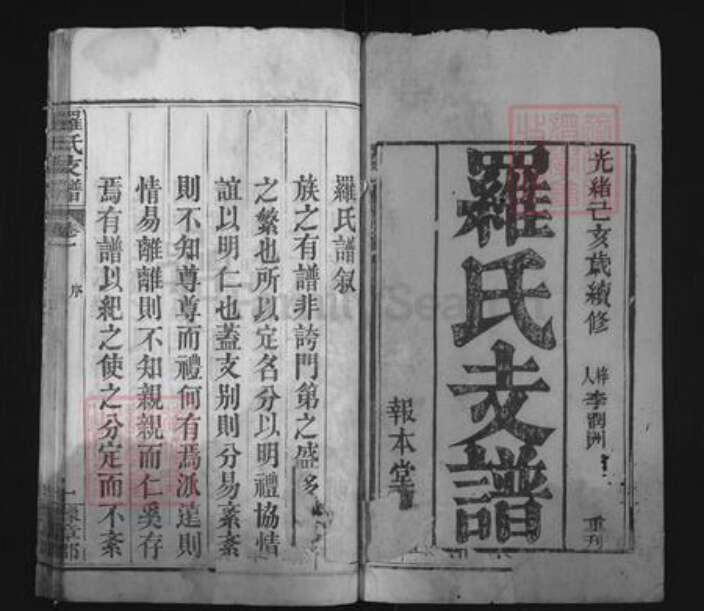 光緒己亥歲續修
梓人李潤洲
重刊
羅氏支譜
報本堂
羅氏譜叙
族之有譜非誇門第之盛
之繁也所以定名分以明禮協情
誼以明仁也蓋支別則分易紊紊
則不知尊尊而禮何有焉派遠則
情易離離則不知親親而仁奚存
焉有譜以紀之使之分定而不紊
羅氏支譜
卷一
序
一
豫章郡